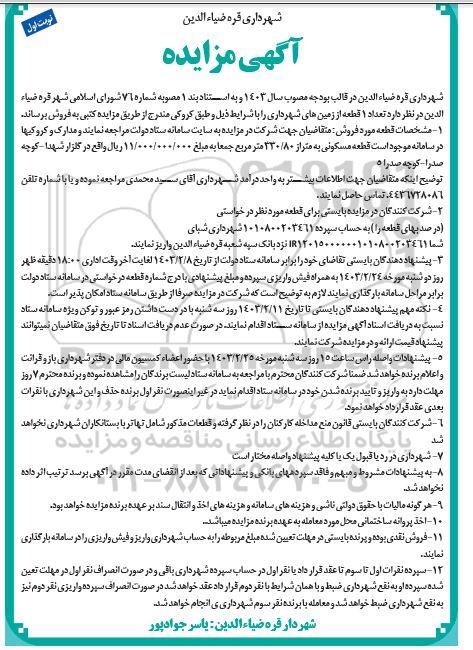 شهرداری قره ضیاءالدین
نوبت اول
آگهی مزایده
شهرداری قره ضیاء الدین در قالب بودجه مصوب سال ۱۴۰۳ و به استناد بند ۱ مصوبه شماره ۷۶ شورای اسلامی شهر قره ضیاء
الدین در نظر دارد تعداد ۱ قطعه از زمین های شهرداری را با شرایط ذیل و طبق کروکی مندرج از طریق مزایده کتبی به فروش برساند.
۱- مشخصات قطعه مورد فروش : متقاضیان جهت شرکت در مزایده به سایت سامانه ستاد دولت مراجعه نمایند و مدارک و کروکیها
در سامانه موجود است قطعه مسکونی به متراژ ۳۳۰/۸۰ متر مربع جمعا به مبلغ ۱۱/۰۰۰/۰۰۰/۰۰۰ ریال واقع در گلزار شهدا-کوچه
صدرا-کوچه صدرا ۵
توضیح اینکه متقاضیان جهت اطلاعات بیشتر به واحد درآمد شهرداری آقای سید محمدی مراجعه نموده و یا با شماره تلفن
۰۴۴۳۶۷۲۸۰۸۶ تماس حاصل نمایند.
۲- شرکت کنندگان در مزایده بایستی برای قطعه مورد نظر در خواستی
(در صد بهای قطعه را) به حساب سپرده ۱۰۱۰۸۰۰۲۰۳۴۶۱ شهرداری شبای
شما IR۱۲۰۱۵۰۰۰۰۰۰۱۰۱۰۸۰۰۲۰۳۴۶۱ نزد بانک سپه شعبه قره ضیاء الدین واریز نمایند.
۳- پیشنهاد دهندگان بایستی تقاضای خود را برابر سامانه ستاد دولت از تاریخ ۱۴۰۳/۲/۸ لغایت آخر وقت اداری ۱۸:۰۰ دقیقه ظهر
روز دو شنبه مورخه ۱۴۰۳/۲/۲۴ به همراه فیش واریزی سپرده و مبلغ پیشنهادی با درج شماره قطعه درخواستی در سامانه ستاد دولت
برابر مراحل سامانه بارگذاری نمایند لازم به توضیح است که شرکت در مزایده صرفا از طریق سامانه ستاد امکان پذیر است.
۴- نکته مهم پیشنهاد دهندگان بایستی تا تاریخ ۱۴۰۳/۲/۱۱ روز سه شنبه با در دست داشتن رمز عبور و توکن ویژه سامانه ستاد
نسبت به دریافت اسناد آگهی مزایده از سامانه ستاد اقدام نمایند. در صورت عدم دریافت اسناد تا تاریخ فوق متقاضیان نمیتوانند
پیشنهاد قیمت ارائه و در مزایده شرکت نمایند.
۵- پیشنهادات واصله راس ساعت ۱۵ روز سه شنبه مورخه ۱۴۰۳/۲/۲۵ با حضور اعضاء کمسیون مالی در دفتر شهرداری باز و قرائت
و اعلام برنده خواهد شد ضمنا شرکت کنندگان محترم با مراجعه به سامانه ستاد لیست برندگان را مشاهده نموده و برنده محترم ۷ روز
مهلت دارد به واریز و تایید برنده شدن خود در سامانه ستاد اقدام نماید در غیر اینصورت نفر اول برنده حذف و این شهرداری با نفرات
بعدی عقد قرارداد خواهد نمود.
۶- شرکت کنندگان بایستی قانون منع مداخله کارکنان را در نظر گرفته و قطعات مذکور شامل تهاتر با بستانکاران شهرداری نخواهد
شد
۷- شهرداری در رد یا قبول یک یا کلیه پیشنهاد واصله مختار است
۸- به پیشنهادات مشروط و مبهم و فاقد سپرده‌های بانکی و پیشنهاداتی که بعد از انقضای مدت مقرر در آگهی برسد ترتیب اثر داده
نخواهد شد.
۹- هر گونه مالیات یا حقوق دولتی ناشی و هزینه های سامانه و هزینه های اخذ و انتقال سند بر عهده برنده مزایده خواهد بود.
۱۰- اخذ پروانه ساختمانی محل مورد معامله به عهده برنده مزایده میباشد.
۱۱- فروش نقدی بوده و برنده بایستی در مهلت تعیین شده مبلغ مربوطه را به حساب شهرداری واریز و فیش واریزی را در سامانه بارگذاری
نمایند.
۱۲- سپرده نفرات اول تا سوم تا عقد قرار داد با نفر اول در حساب سپرده شهرداری باقی و در صورت انصراف نفر اول در مهلت تعیین
شده سپرده او به نفع شهرداری ضبط و با همان شرایط با نفر دوم قرار داد عقد خواهد شد در صورت انصراف سپرده واریزی نفر دوم نیز
به نفع شهرداری ضبط خواهد شد و معامله با برنده نفر سوم شهرداری ی انجام خواهد شد.
شهردار قره ضیاءالدین: یاسر جوادپور